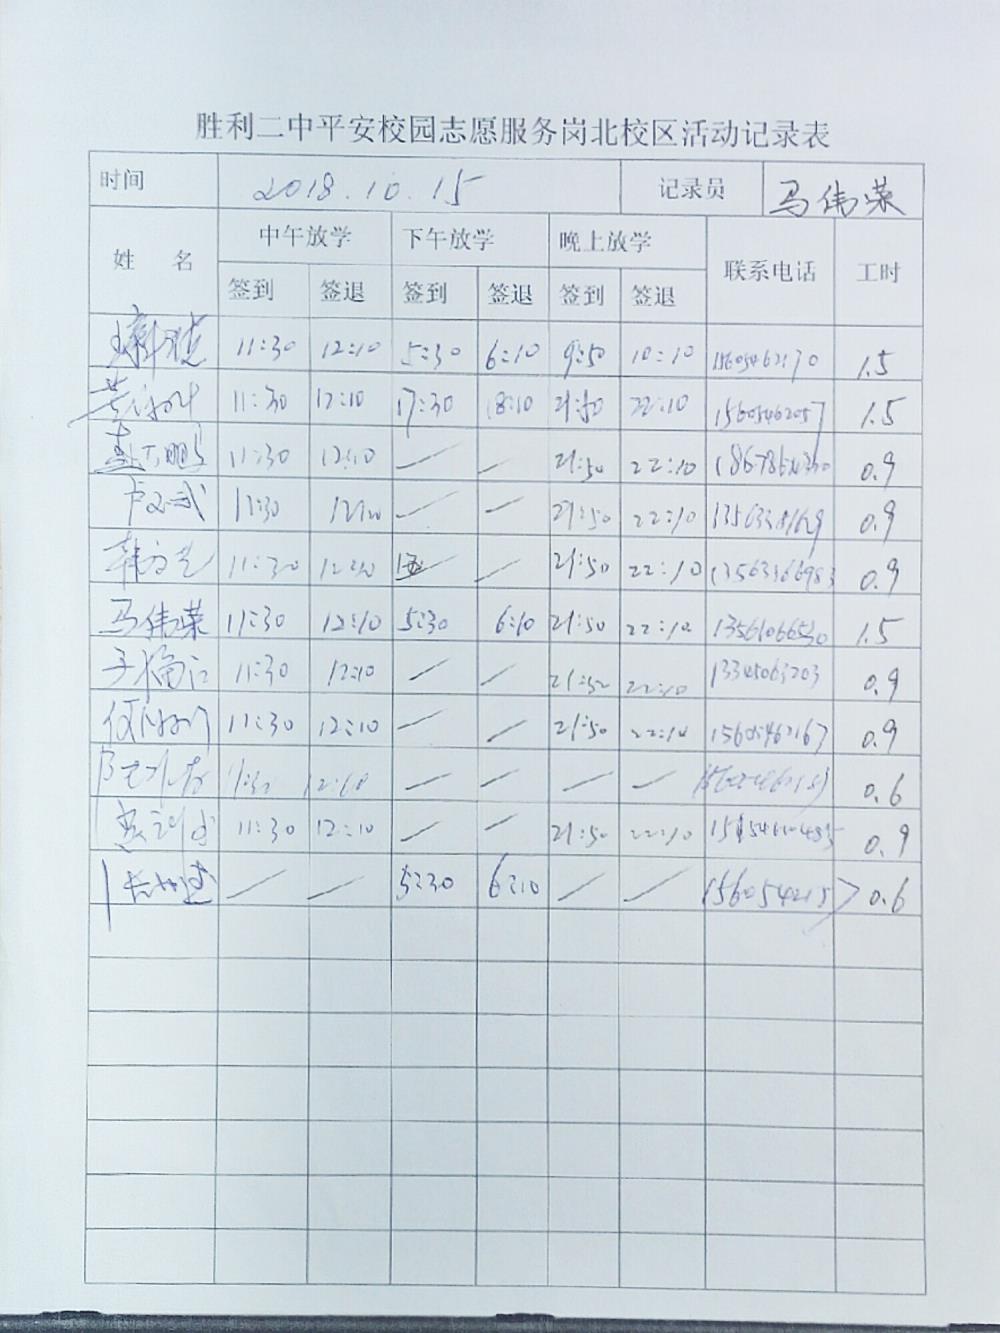 胜利二中平安校园志愿服务岗北校区活动记录表
时间 2018.10.15 记录员 马伟荣
姓 名 中午放学 下午放学 晚上放学 联系电话 工时
签到 签退 签到 签退 签到 签退
11:30 12:10 5:30 6:10 9:50 10:10 1.5
11:30 12:10 17:30 18:10 21:50 22:10 1.5
11:30 12:10 — — 21:50 22:10 0.9
11:30 — — 21:50 22:10 0.9
11:30 — 21:50 22:10 0.9
马伟荣 11:30 12:10 5:30 6:10 21:50 22:10 13561066530 1.5
11:30 12:10 — — 21:50 22:10 13345063203 0.9
11:30 12:10 — — 21:50 22:10 15605462167 0.9
11:30 12:10 — — — — 0.6
11:30 12:10 — — 21:50 22:10 0.9
— — 5:30 6:10 — — 0.6